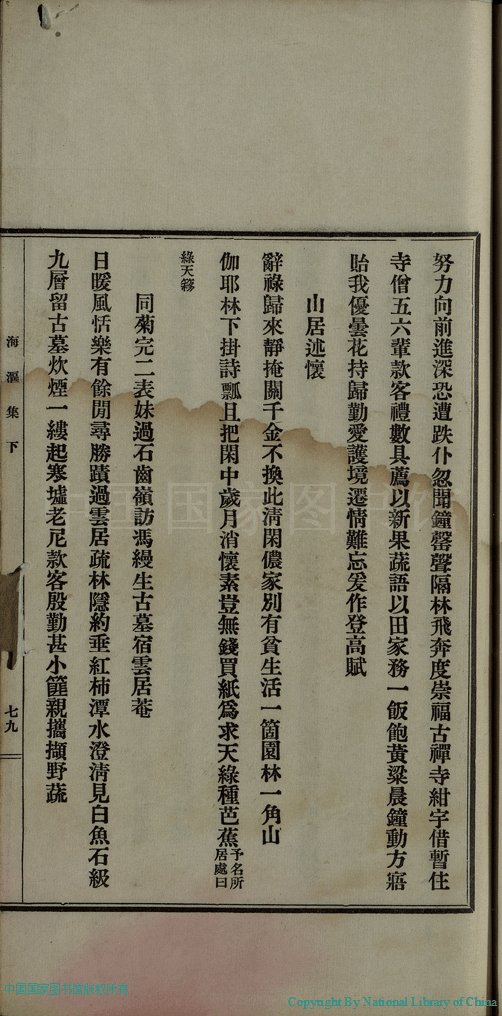 努力向前進深恐遭跌仆忽聞鐘罄聲隔林飛奔度崇福古禪寺紺宇借暫住
寺僧五六輩款客禮數具薦以新果蔬語以田家務一飯飽黃粱晨鐘動方寤
貽我優曇花持歸勤愛護境遷情難忘爰作登高賦
山居述懷
辭祿歸來靜掩關千金不換此清閑儂家別有貧生活一箇園林一角山
伽耶林下掛詩瓢且把閑中歲月消懷素豈無錢買紙爲求天綠種芭蕉予名所居處曰
綠天簃
同菊完二表妹過石齒嶺訪馮縵生古墓宿雲居菴
日暖風恬樂有餘閒尋勝蹟過雲居疏林隱約垂紅柿潭水澄清見白魚石級
九層留古墓炊煙一縷起寒墟老尼款客殷勤甚小籃親攜擷野蔬
海漚集下
七九
中国国家图书馆
Copyright By National Library of China